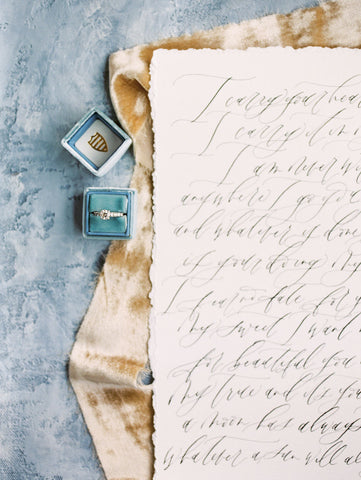 I carry your hea
I carry it in
I am never w
anywhere I go yo
and whatever is done
is your doing my
I fear no fate for y
my sweet I want
for beautiful you
my true and it's yo
a moon has always
whatever a sun will al